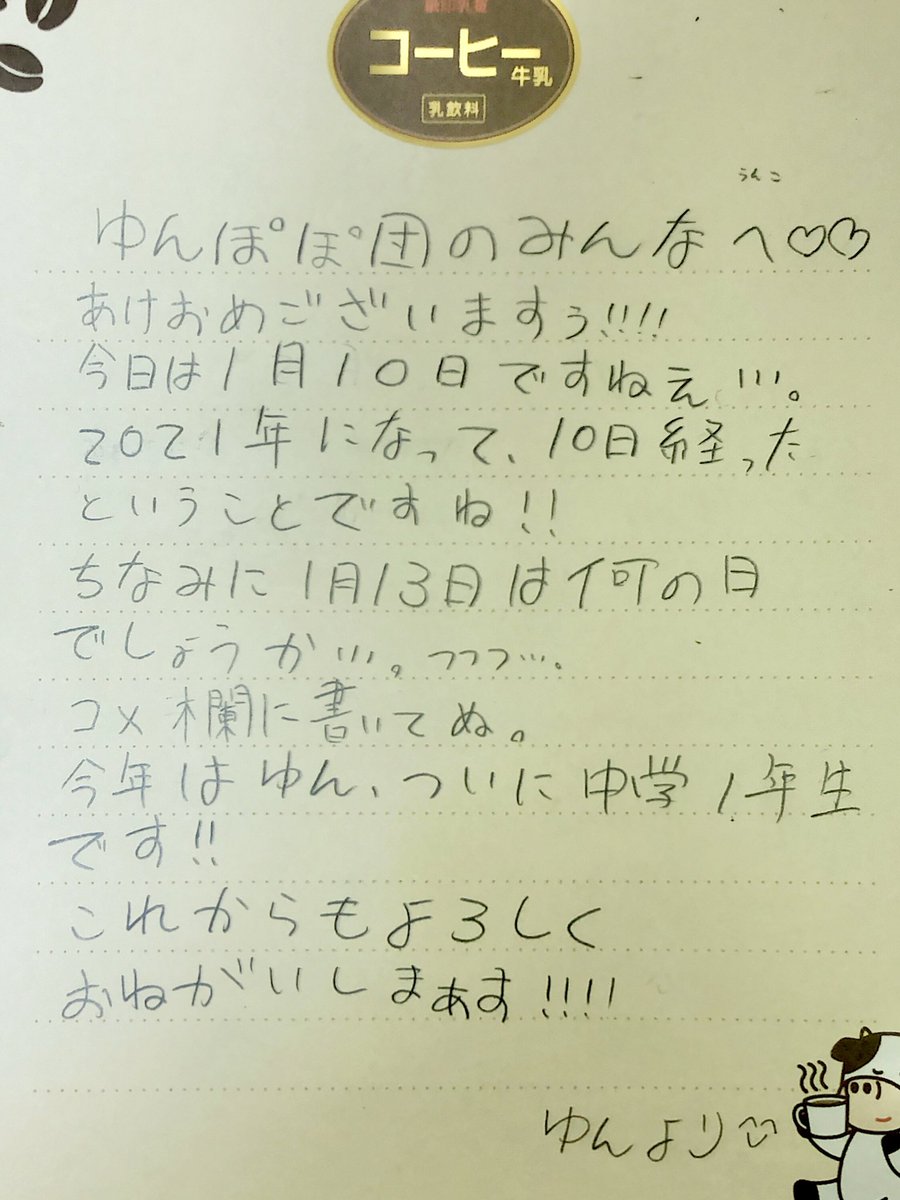 コーヒー
牛乳
乳飲料
うんこ
ゆんぽぽ団のみんなへ♡♡
あけおめございますぅ!!!!
今日は1月10日ですねぇ…。
2021年になって、10日経った
ということですね!!
ちなみに1月13日は何の日
でしょうか…。ㄱㄱㄱ….
コメ欄に書いてぬ。
今年はゆん、ついに中学1年生
です!!
これからもよろしく
おねがいしまぁす!!!!
ゆんより